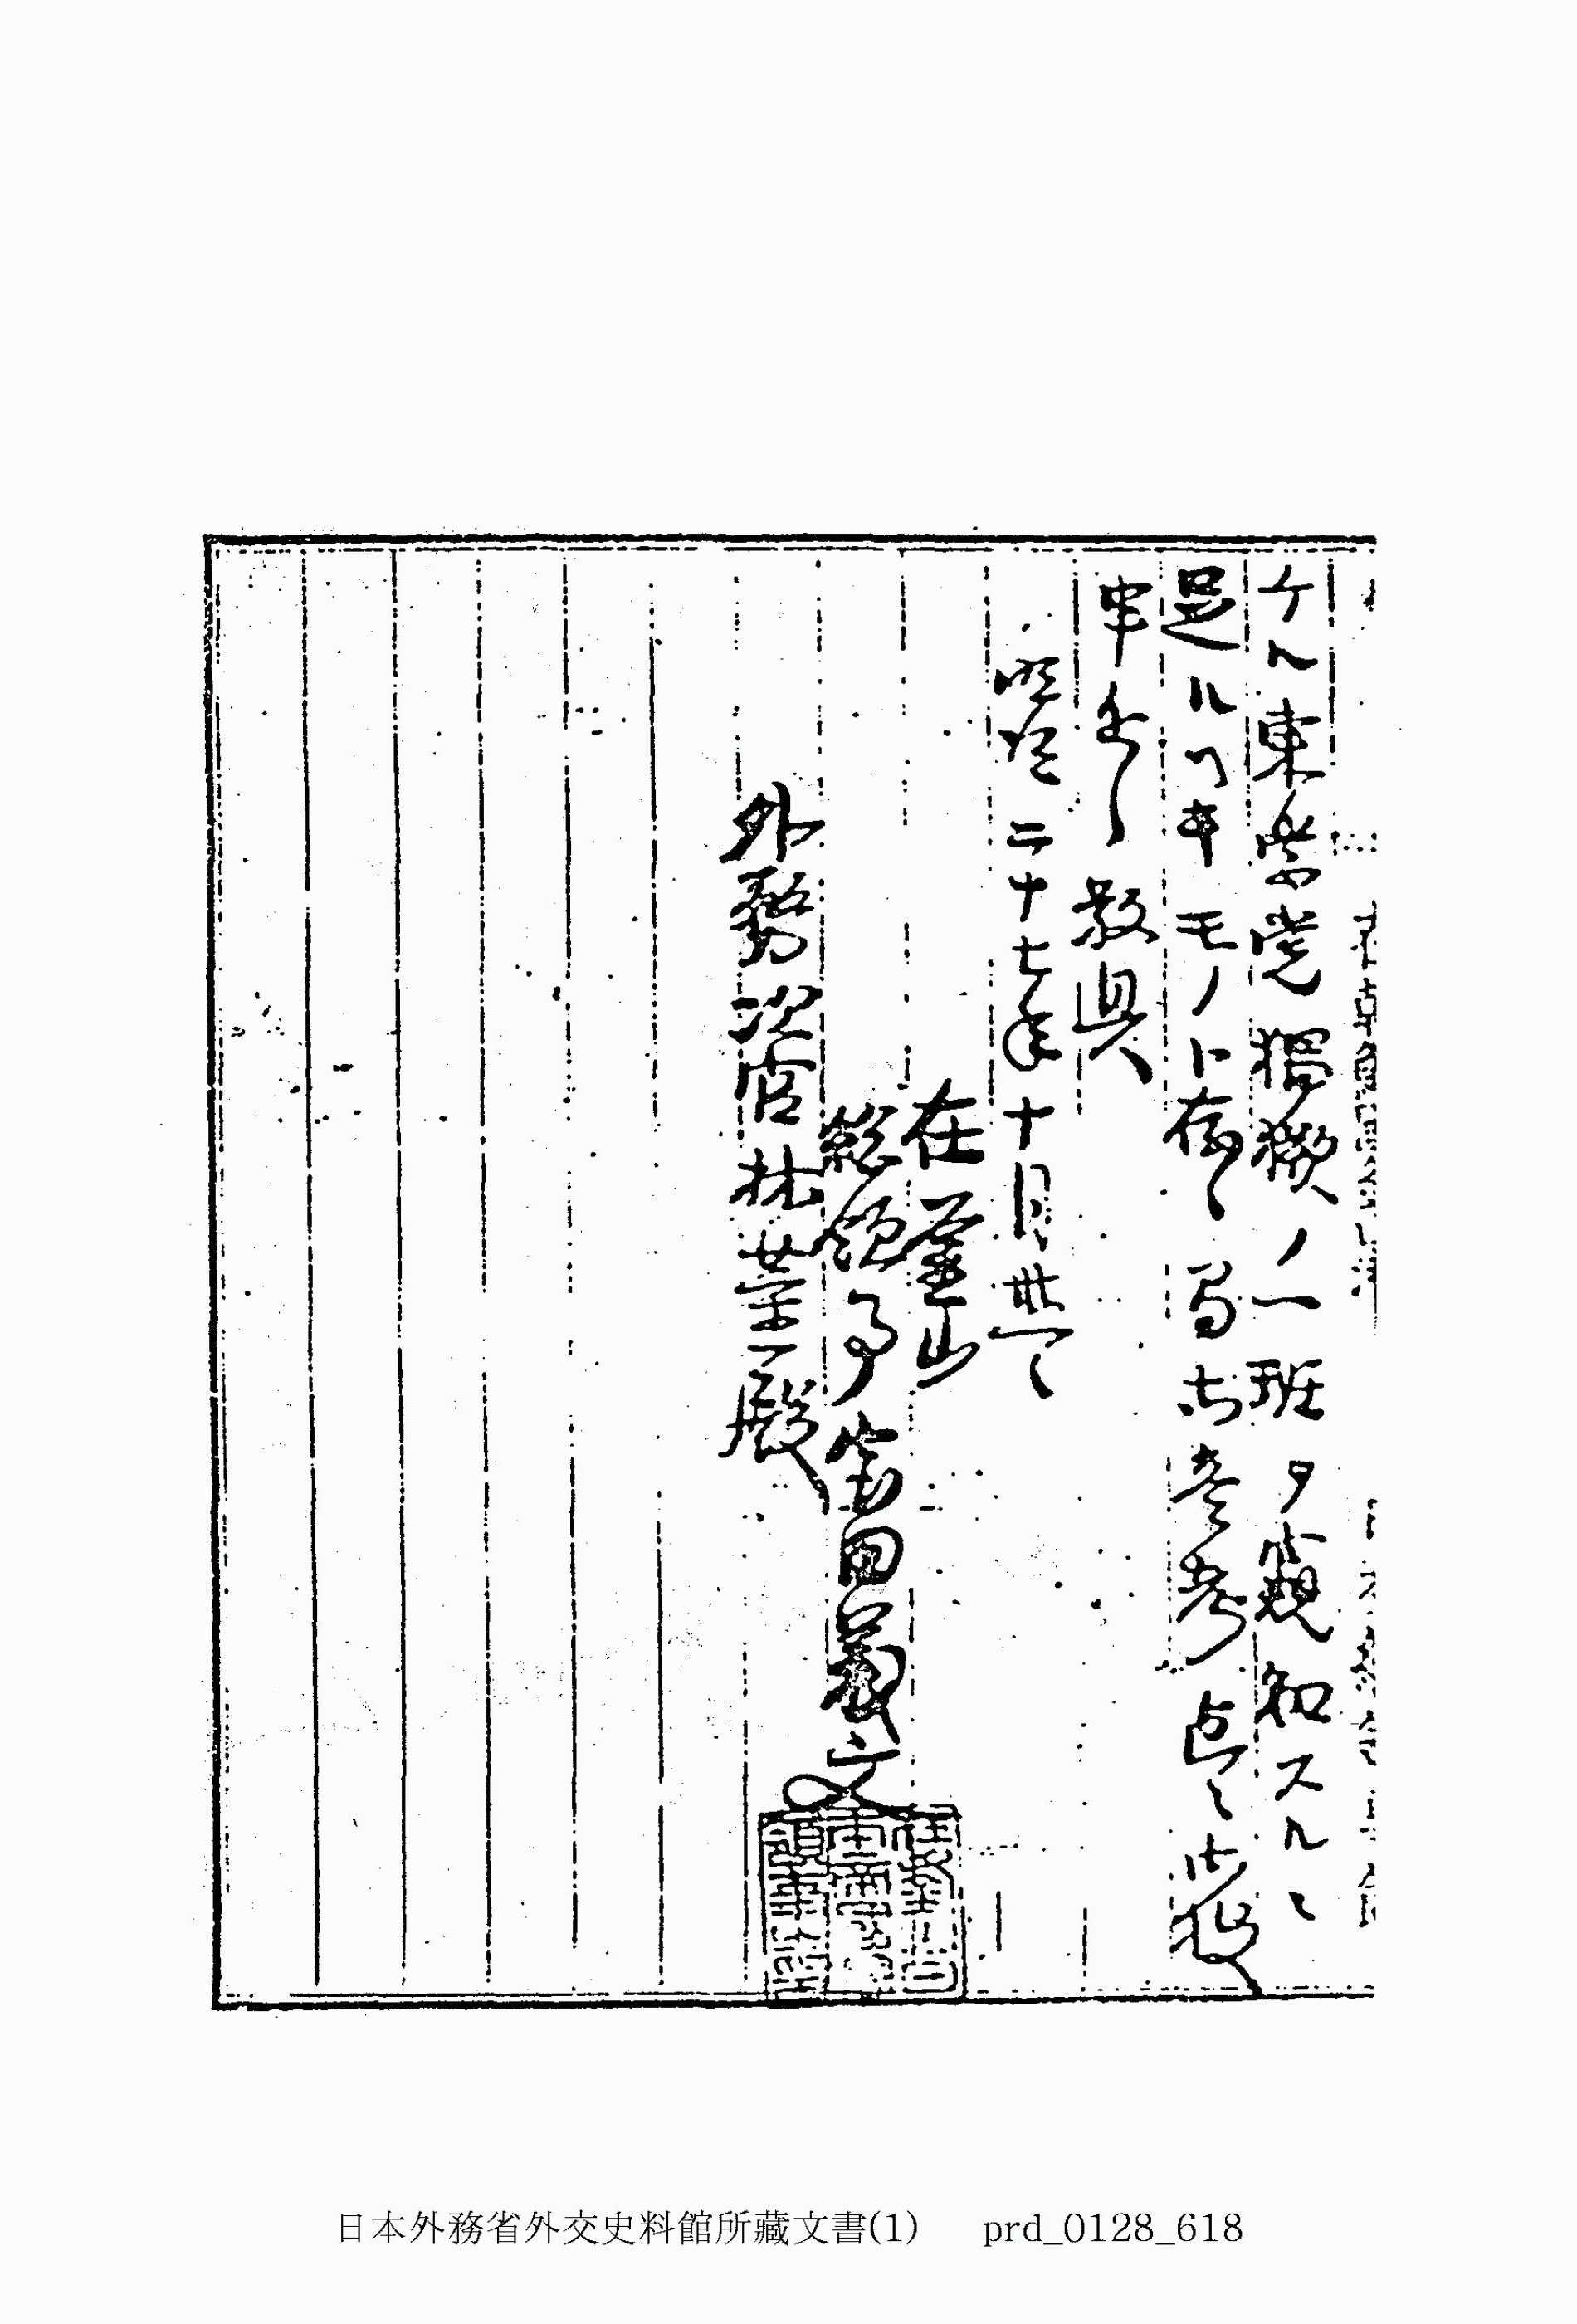 ケル東學党猖獗ノ一班ヲ窺知スルニ
足ルヘキモノト存候ニ付御参考迠ニ御
申進候敬具
明治二十七年十月卅一日
在釜山
総領事室田義文
外務次官林董殿
日本外務省外交史料館所藏文書(1) prd_0128_618